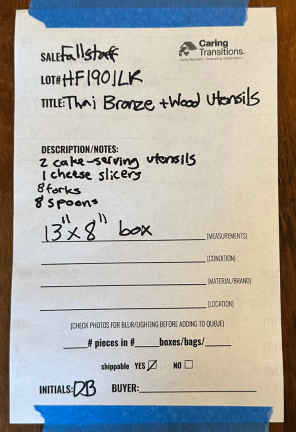 Caring
Transitions
SALE: Fallstaff
LOT# HF1901LK
TITLE: Thai Bronze + Wood Utensils
DESCRIPTION/NOTES:
2 cake-serving utensils
1 cheese slicery
8 forks
8 spoons
13" x 8" box (MEASUREMENTS)
(CONDITION)
(MATERIAL/BRAND)
(LOCATION)
(CHECK PHOTOS FOR BLUR/LIGHTING BEFORE ADDING TO QUEUE)
# pieces in # boxes/bags/
shippable YES NO
INITIALS: DB BUYER: